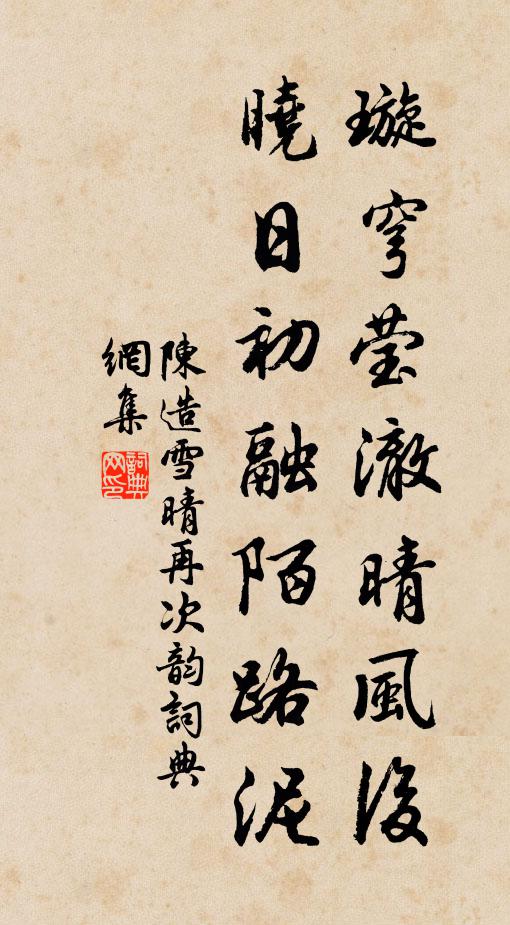 璇穹莹澈晴風後
曉日初融陌路泥
陳造雪晴再次韵詞典
網集
詞典网印